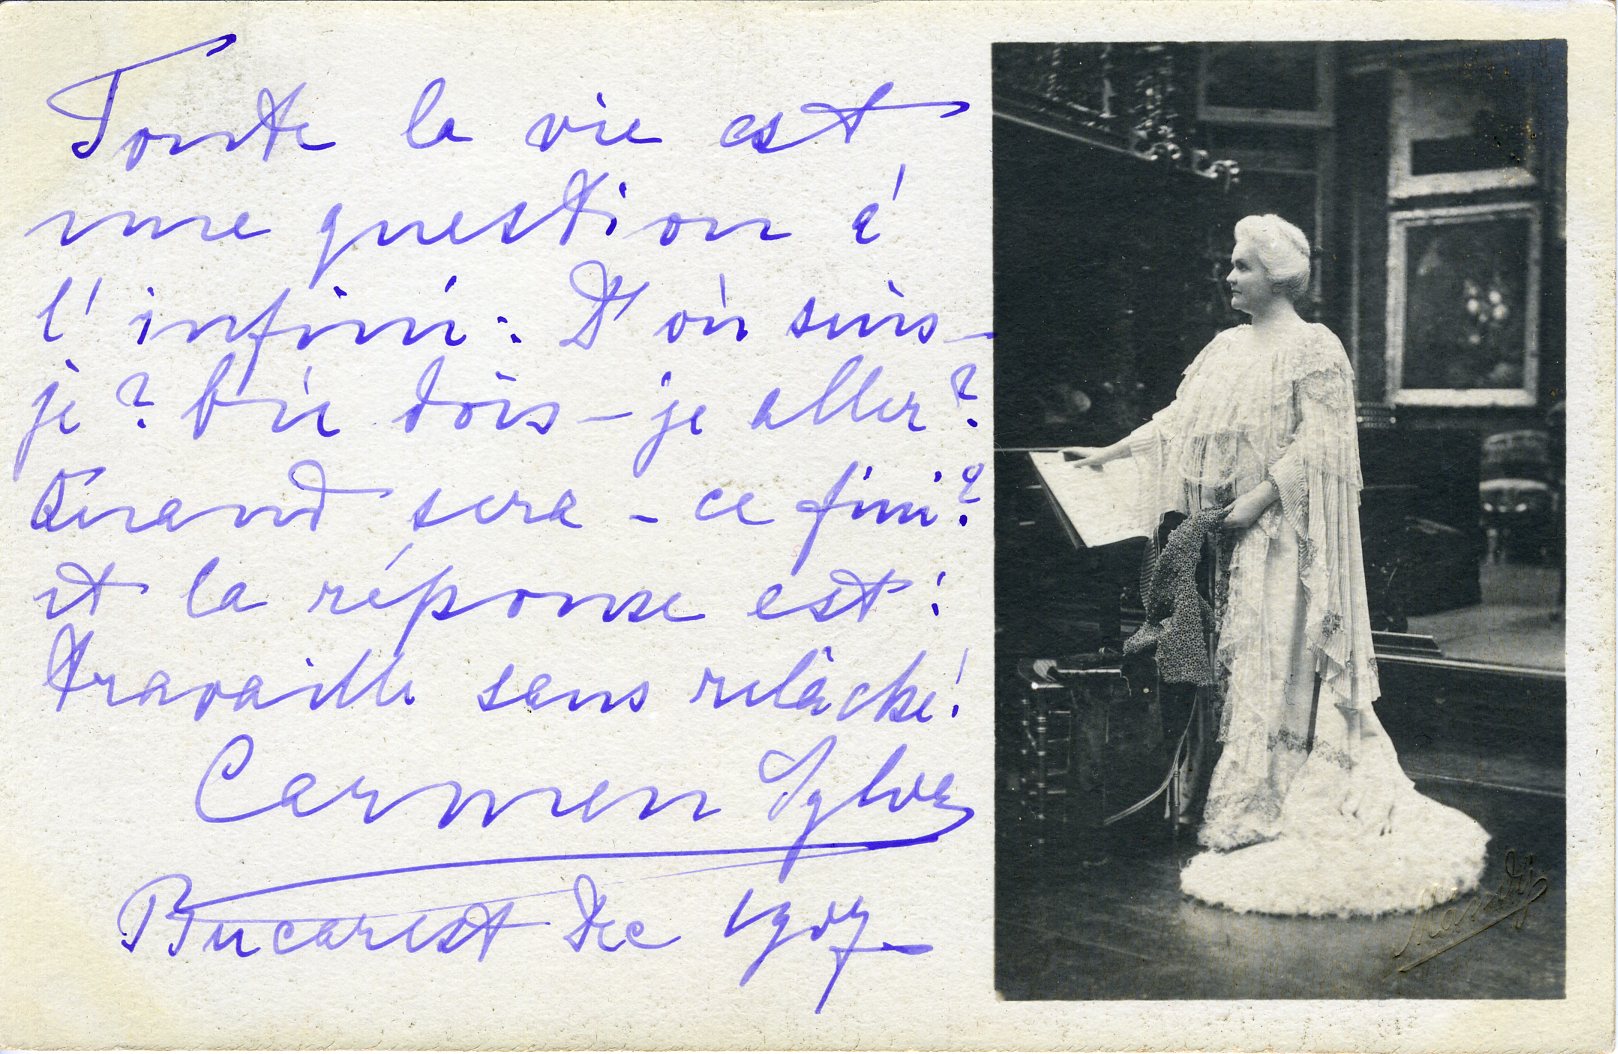 Toute la vie est
une question à
l'infini: D'où suis-
je? Où dois-je aller?
Quand sera-ce fini?
et la réponse est:
travaille sans relâche!
Carmen Sylva
Bucarest Dec 1907
Mandy